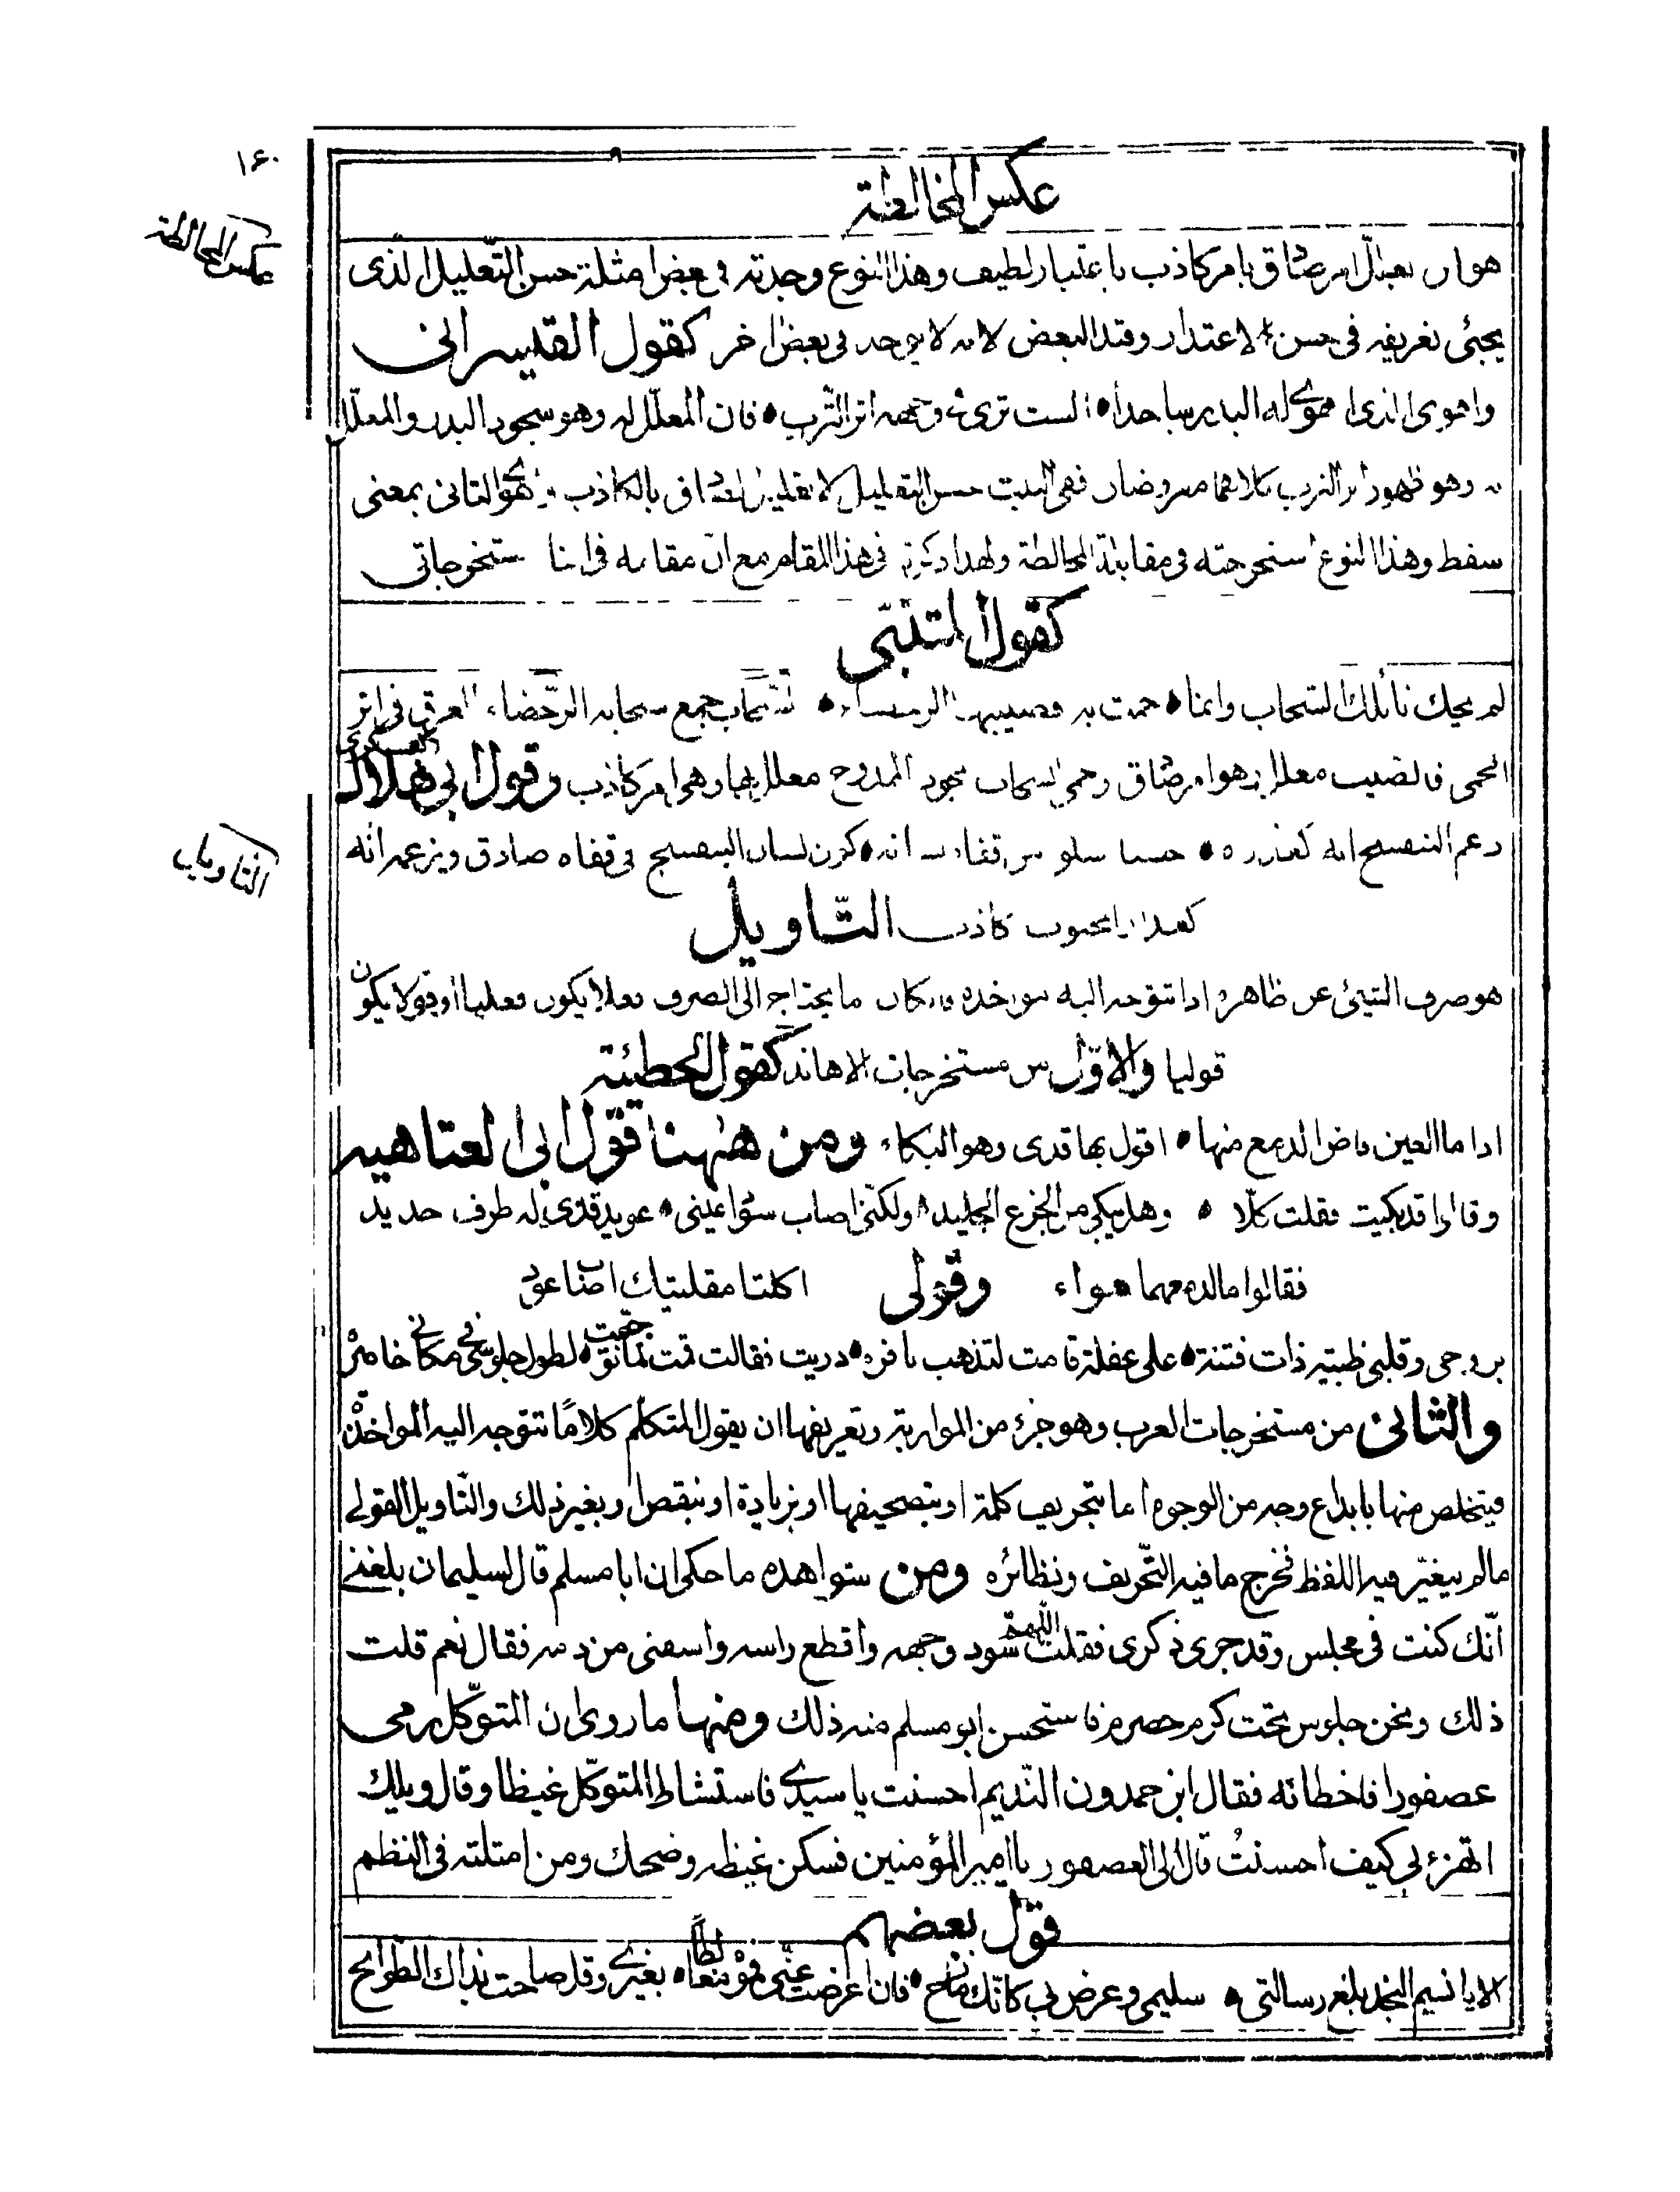 ١٤٠
عكس المخالطة
عكس المخالطة
هو ان يعلل امر صادق بامر كاذب باعتبار لطيف وهذا النوع وجدته في بعض امثلة حسن التعليل الذى
يجئى تعريفه فى حسن الاعتذار وقيد البعض لانه لا يوجد فى بعض اخر كقول القيسرانى
واهوى الذى اهوى له البدر ساجدا الست ترى فى وجهه اثر الترب فان المعلل له وهو سجود البدر والمعلل
به وهو ظهور اثر الترب كلاهما مفروضان ففى البيت حسن التعليل لا تعليل الصادق بالكاذب اهوى الثانى بمعنى
سقط وهذا النوع استخرجته فى مقابلة المخالطة ولهذا ذكرته فى هذا المقام مع ان مقامه فى مستخرجاتى
كقول المتنبى
لم يحك نائلك السحاب وانما حمت به فصبيبها الرحضاء السحاب جمع سحابه الرحضاء العرق فى اثر
الحمى فالصبيب معلل به هو امر صادق وحمى السحاب بجود الممدوح معلل بها وهى امر كاذب وقول ابى هلال العسكرى
زعم البنفسج انه كعذاره حسنا فسلوا من قفاه لسانه كون لسان البنفسج فى قفاه صادق وبزعمه انه
التاويل
كعذار المحبوب كاذب التاويل
هو صرف الشيئ عن ظاهره اذا تتوجه اليه مواخذه فان كان ما يحتاج الى الصرف فعلا يكون فعليا او قولا يكون
قوليا والاول من مستخرجات الاهاند كقول الحطيئة
اذا ما العين فاض الدمع منها اقول بها قذى وهو البكاء ومن ههنا قول ابى العتاهيه
وقالوا قد بكيت فقلت كلا وهل يبكى من الجزع الجليد ولكنى اصاب سواد عينى عويد قذى له طرف حديد
فقالوا ما لدمعهما سواء وقولى اكلتا مقلتيك اصاب عود
بروحى وقلبى ظبية ذات فتنة على غفلة قامت لتذهب نافره دريت فقالت قمت حقيق لطول جلوسى فى مكانى خاثره
والثانى من مستخرجات العرب وهو جزء من المواربة وتعريفها ان يقول المتكلم كلاما تتوجه اليه المواخذة
فيتخلص منها بابداع وجه من الوجوه اما بتحريف كلمة او بتصحيفها او بزيادة او بنقص او بغير ذلك والتاويل القولى
مالم يتغير فيه اللفظ فخرج ما فيه التحريف ونظائره ومن شواهده ما حكى ان ابا مسلم قال لسليمان بلغنى
انك كنت فى مجلس وقد جرى ذكرى فقلت اللهم سود وجهه واقطع راسه واسقنى من دمه فقال نعم قلت
ذلك ونحن جلوس تحت كرم حصرم فاستحسن ابو مسلم منه ذلك ومنها ما روى ان المتوكل رمى
عصفورا فاخطاته فقال ابن حمدون النديم احسنت يا سيدى فاستشاط المتوكل غيظا وقال ويلك
اتهزء لى كيف احسنتُ قال الى العصفور يا امير المؤمنين فسكن غيظه وضحك ومن امثلته فى النظم
قول بعضهم
الا يا نسيم النجد بلغ رسالتى سليمى وعرض بى كانك مازح فان اعرضت عنى فموه مغالطا بغيرى وقل صاحت بذاك الطوايح